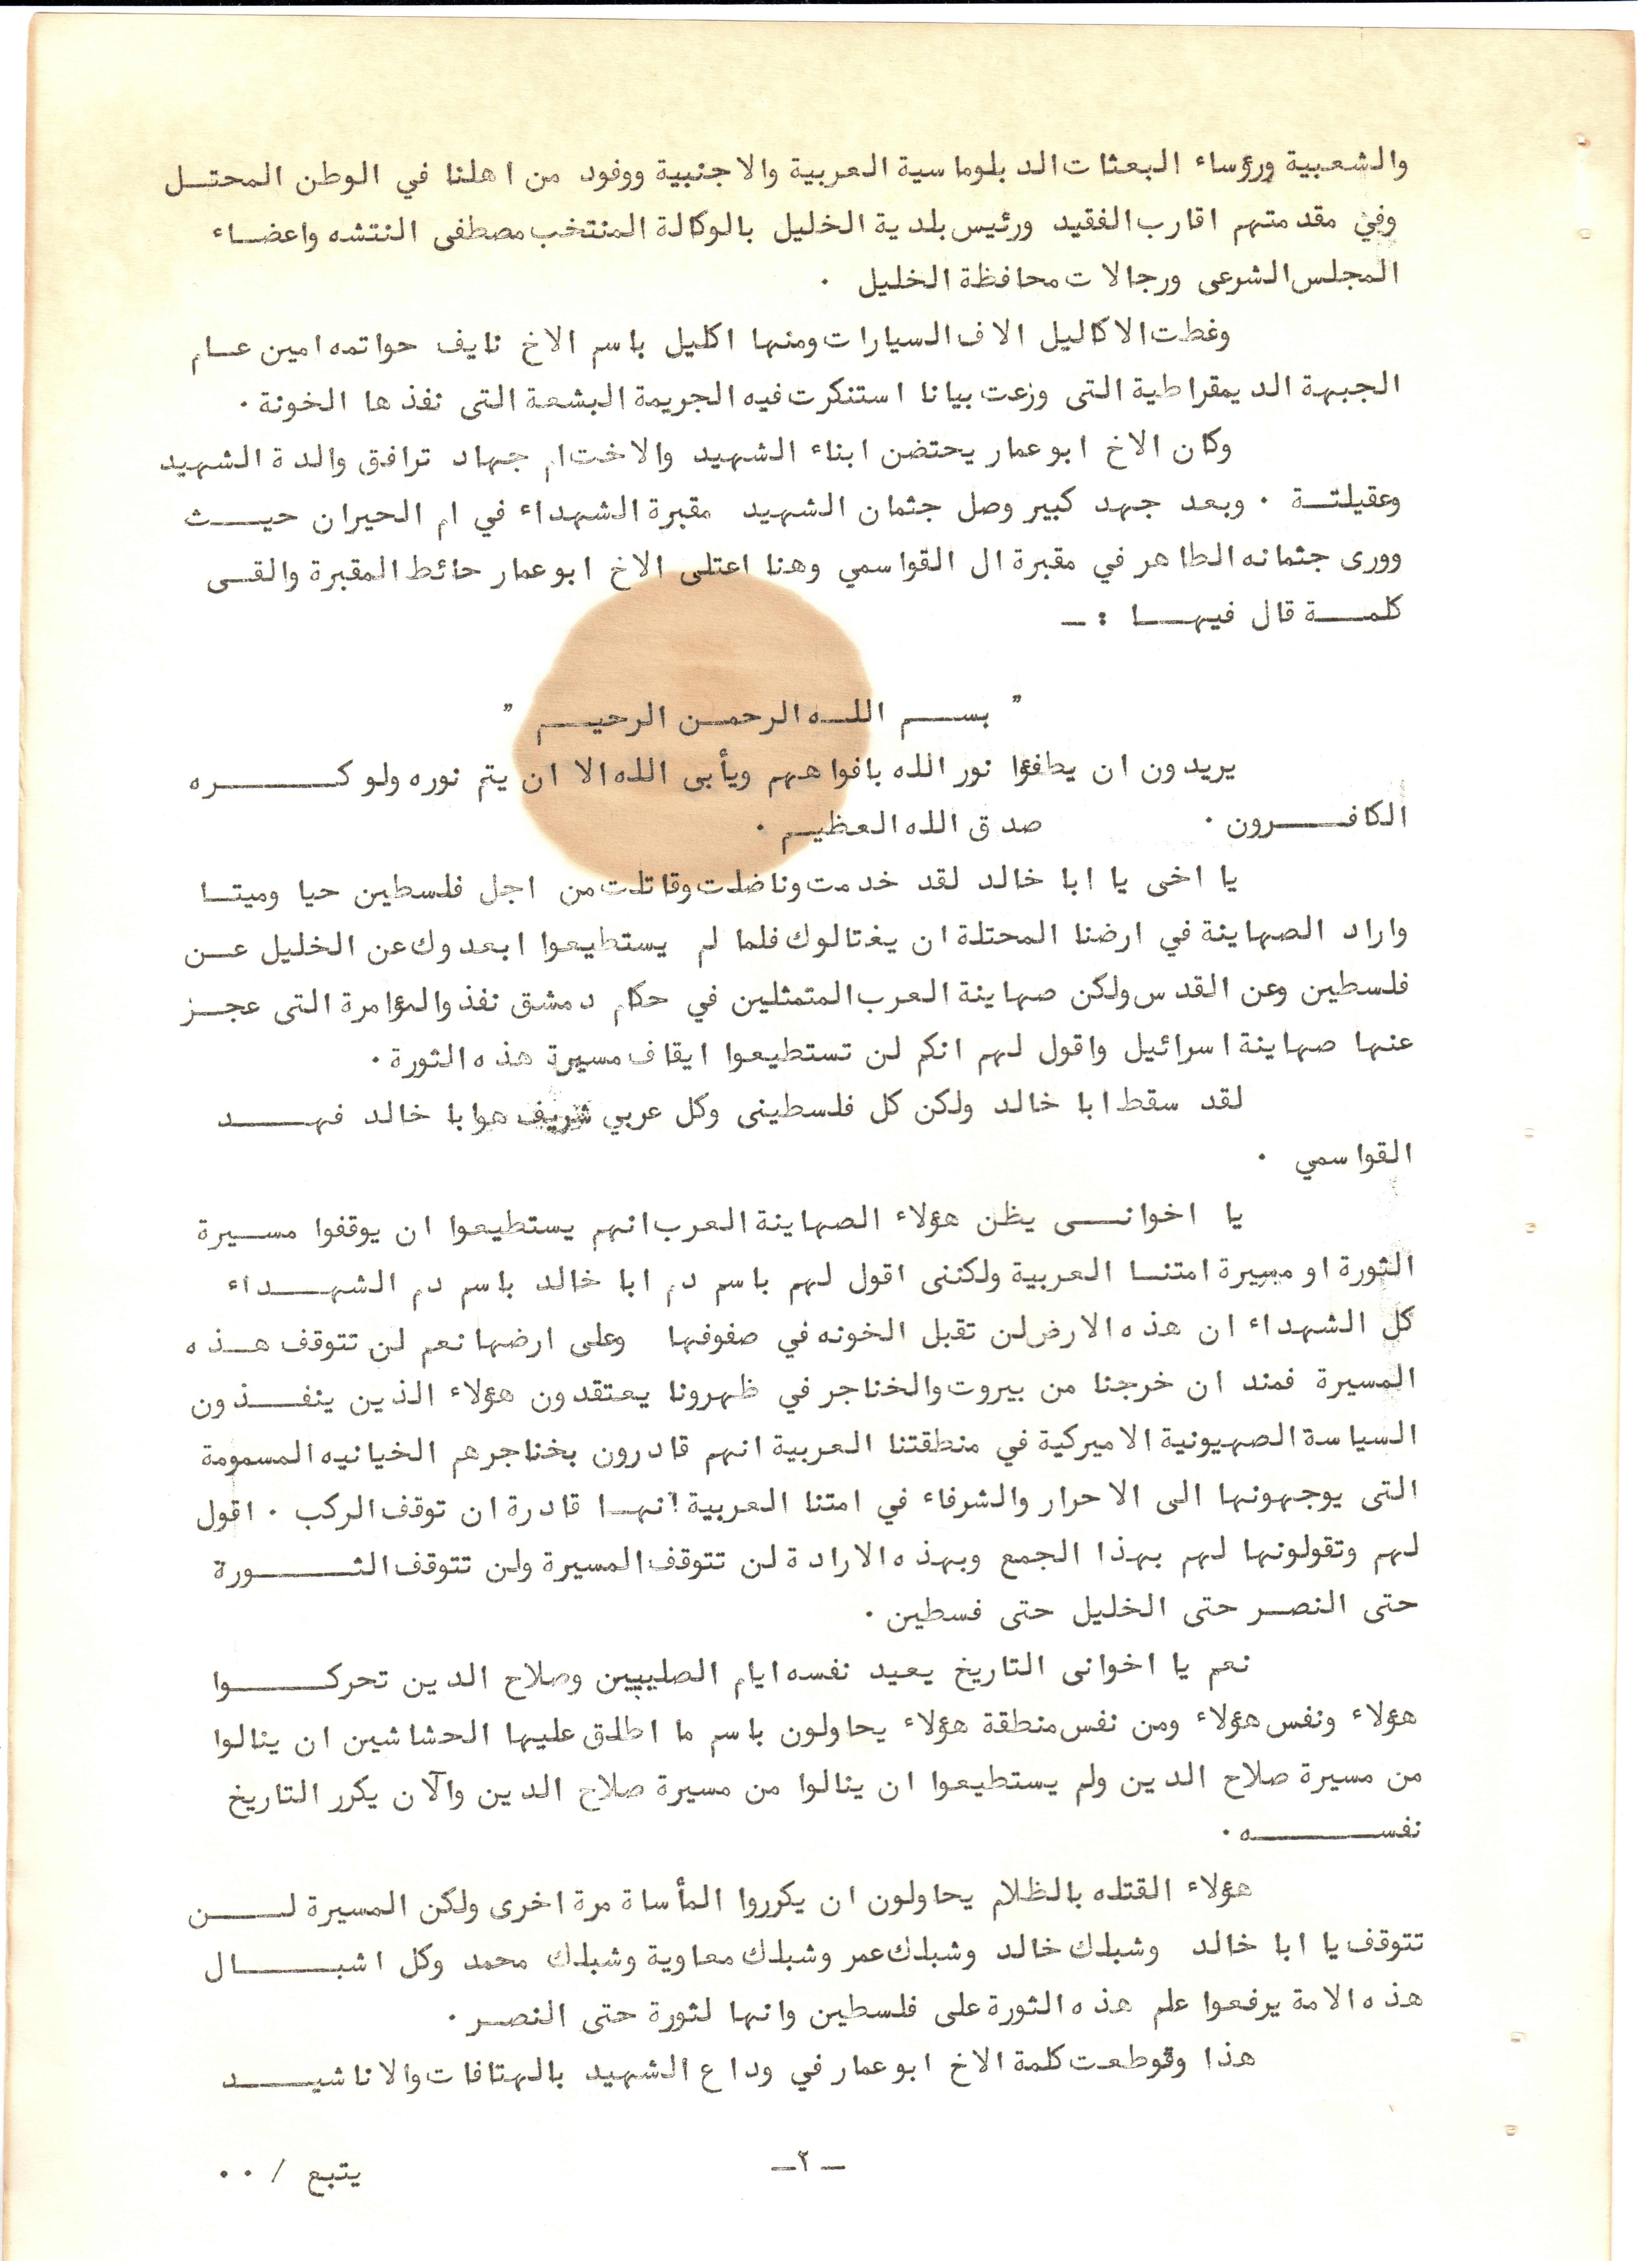 والشعبية ورؤساء البعثات الدبلوماسية العربية والاجنبية ووفود من اهلنا في الوطن المحتــل
وفي مقدمتهم اقارب الفقيد ورئيس بلدية الخليل بالوكالة المنتخب مصطفى النتشه واعضـاء
المجلس الشرعى ورجالات محافظة الخليل .
وغطت الاكاليل الاف السيارات ومنها اكليل باسم الاخ نايف حواتمه امين عـام
الجبهة الديمقراطية التى وزعت بيانا استنكرت فيه الجريمة البشعة التى نفذها الخونة .
وكان الاخ ابو عمار يحتضن ابناء الشهيد والاخت ام جهاد ترافق والدة الشهيد
وعقيلتـة . وبعد جهد كبير وصل جثمان الشهيد مقبرة الشهداء في ام الحيران حيــث
وورى جثمانه الطاهر في مقبرة ال القواسمي وهنا اعتلى الاخ ابو عمار حائط المقبرة والقــى
كلمــة قال فيهــا : ــ
" بســم اللـه الرحمـن الرحيــم "
يريدون ان يطفؤا نور الله بافواههم ويأبى الله الا ان يتم نوره ولو كـــــره
الكافــــرون . صدق الله العظيـم .
يا اخى يا ابا خالد لقد خدمت وناضلت وقاتلت من اجل فلسطين حيا وميتــا
واراد الصهاينة في ارضنا المحتلة ان يغتالوك فلما لم يستطيعوا ابعدوك عن الخليل عــن
فلسطين وعن القدس ولكن صهاينة العرب المتمثلين في حكام دمشق نفذ والمؤامرة التى عجــز
عنها صهاينة اسرائيل واقول لهم انكم لن تستطيعوا ايقاف مسيرة هذه الثورة .
لقد سقط ابا خالد ولكن كل فلسطينى وكل عربي شريف هو ابا خالد فهـــد
القواسمي .
يا اخوانــى يظن هؤلاء الصهاينة العرب انهم يستطيعوا ان يوقفوا مسـيرة
الثورة او مسيرة امتنـا العربية ولكننى اقول لهم باسم دم ابا خالد باسم دم الشهـــداء
كل الشهداء ان هذه الارض لن تقبل الخونه في صفوفها وعلى ارضها نعم لن تتوقف هــذه
المسيرة فمند ان خرجنا من بيروت والخناجر في ظهرونا يعتقدون هؤلاء الذين ينفــذون
السياسة الصهيونية الاميركية في منطقتنا العربية انهم قادرون بخناجرهم الخيانيه المسمومة
التى يوجهونها الى الاحرار والشرفاء في امتنا العربية انهـا قادرة ان توقف الركب . اقول
لهم وتقولونها لهم بهذا الجمع وبهذه الارادة لن تتوقف المسيرة ولن تتوقف الثــــورة
حتى النصـر حتى الخليل حتى فسطين .
نعم يا اخوانى التاريخ يعيد نفسه ايام الصليبيين وصلاح الدين تحركــــوا
هؤلاء ونفس هؤلاء ومن نفس منطقة هؤلاء يحاولون باسم ما اطلق عليها الحشاشين ان ينالوا
من مسيرة صلاح الدين ولم يستطيعوا ان ينالوا من مسيرة صلاح الدين والآن يكرر التاريخ
نفســـــه .
هؤلاء القتله بالظلام يحاولون ان يكرروا المأساة مرة اخرى ولكن المسيرة لـــن
تتوقف يا ابا خالد وشبلك خالد وشبلك عمر وشبلك معاوية وشبلك محمد وكل اشبــــال
هذه الامة يرفعوا علم هذه الثورة على فلسطين وانها لثورة حتى النصـر .
هذا وقوطعت كلمة الاخ ابو عمار في وداع الشهيد بالهتافات والاناشيــــد
ــ ٢ــ
يتبع / ..